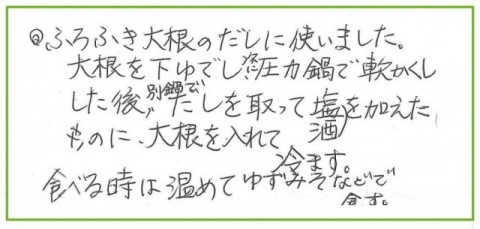 ◎ふろふき大根のだしに使いました。
大根を下ゆでし圧力鍋で軟かくし
した後、別鍋でだしを取って塩を加えた
酒
ものに、大根を入れて
冷ます。
食べる時は温めてゆずみそなどで
食す。